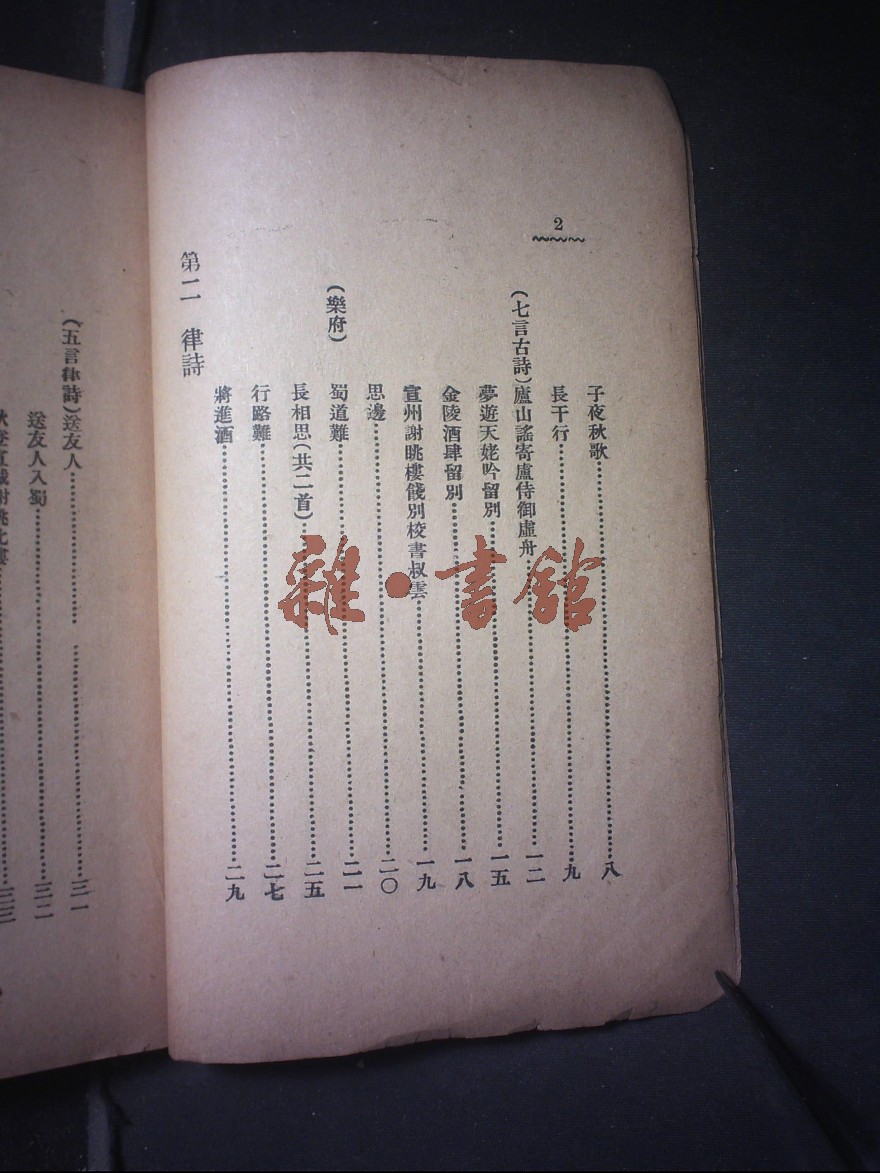 2
子夜秋歌……八
長干行……九
(七言古詩)廬山謠寄盧侍御虛舟……一二
夢遊天姥吟留別……一五
金陵酒肆留別……一八
宣州謝眺樓餞別校書叔雲……一九
思邊……二〇
(樂府)
蜀道難……二一
長相思(共二首)……二五
行路難……二七
將進酒……二九
第二 律詩
(五言律詩)送友人……三一
送友人入蜀……三二
秋登宣城謝眺北樓……三三
雜·書館